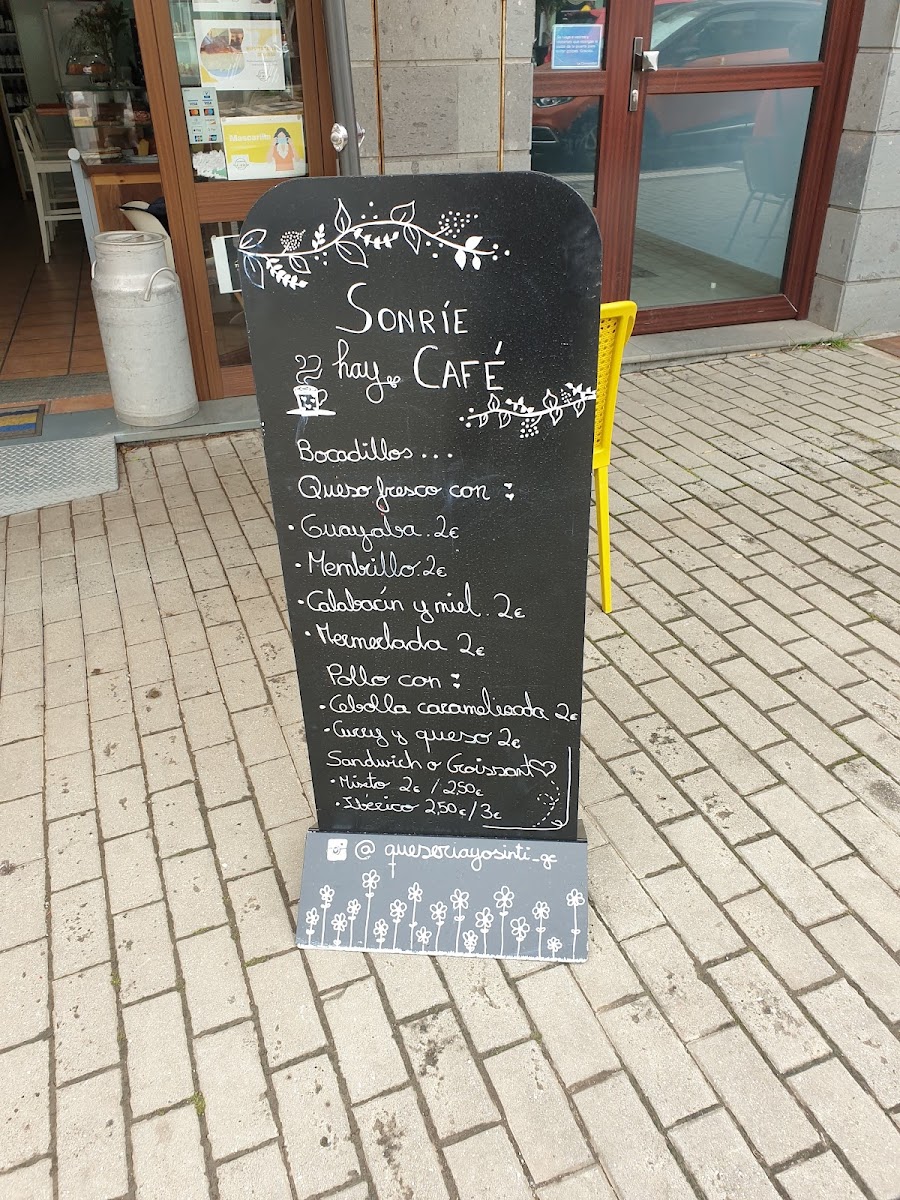 Mascarilla
SONRÍE
hay CAFÉ
Bocadillos...
Queso fresco con :
• Guayaba. 2€
• Membrillo. 2€
• Calabacín y miel. 2€
• Mermerlada 2€
Pollo con :
• Cebolla caramelisada 2€
• Curry y queso 2€
Sandwich o Croissant
• Mixto 2€ / 2,50€
• Ibérico 2,50€ / 3€
@ queseriayosinti_gc